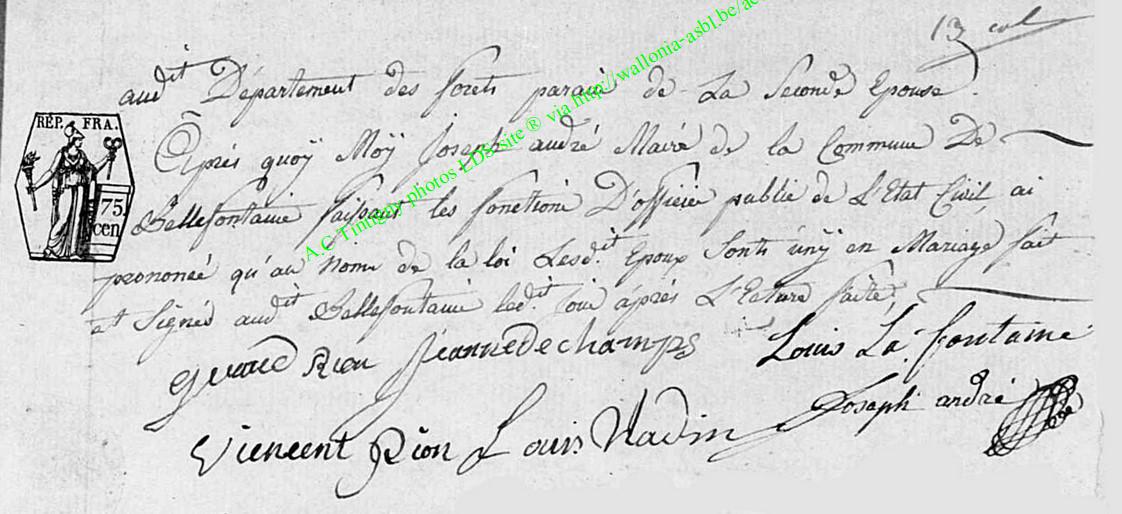 13
audit Département des forets parain de La Seconde Epouse.
Aprés quoÿ Moÿ Joseph andré Maire de la Commune De
Bellefontaine faisant les fonctions D'officier public de L'Etat Civil, ai
prononcé qu'au Nom de la loi Lesdit. Epoux Sonts ünÿ en Mariage fait
et Signés audit Bellefontaine ledit. Jour áprés L'Ecture faite.
RÉP. FRA.
75.
cen
gerard Rion Jeannedechamps Louis La fontaine
Joseph andré
Viencent Rion Louis Nadin
A.C Tintigny photos LDS site ® via http://wallonia-asbl.be/ac